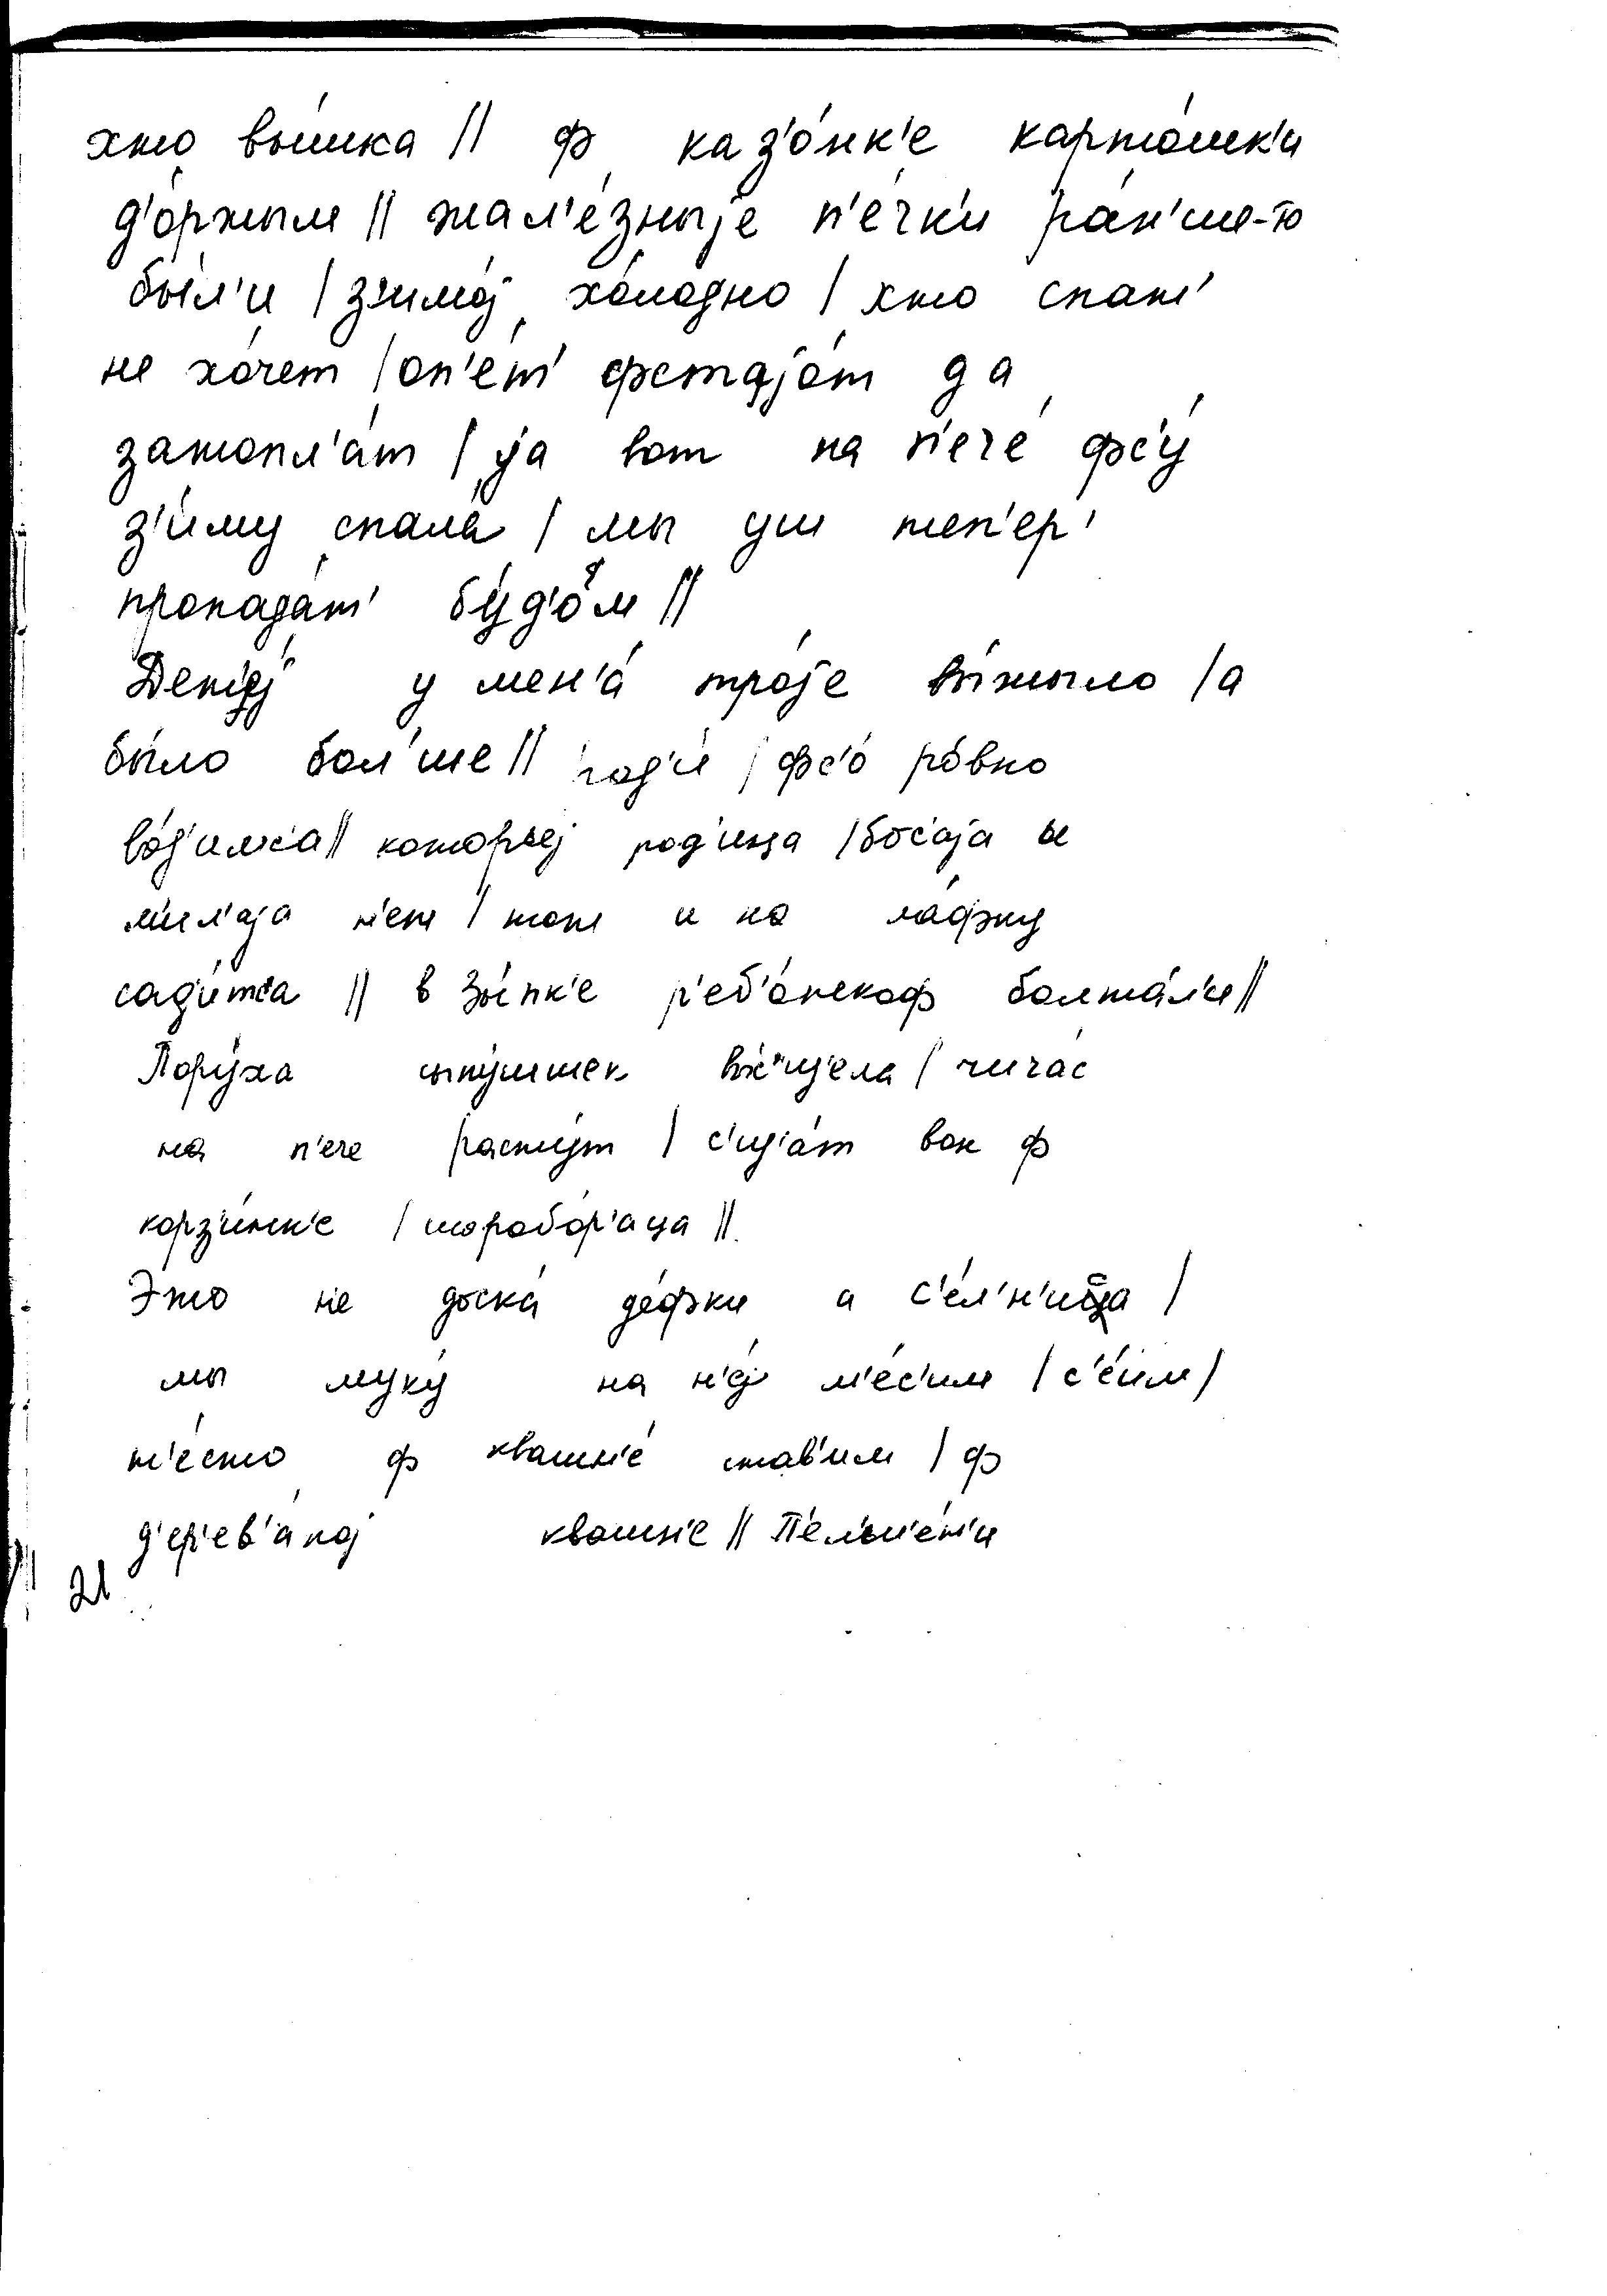 хто вы́шка || ф каз'о́нк'е карто́шк'и
д'о́ржым || жал'е́зныjе п'е́чк'и ра́н'ше-то
бы́л'и | з'имо́j хо́лодно | хто спат'
не хо́чет | оп'е́т' фстаjо́т да
затопл'а́т | jа вот на п'ече́ фс'у́
з'и́му спала́ | мы уш теп'ер'
пропада́т' бу́д'о́м ||
у мен'а́ тро́jе вы́жыло | а
бы́ло бо́л'ше || род'и́ | фс'о́ ро́вно
во́д'имс'а || кото́рыj род'и́ца | бос'аjа и
м'ил'аjа н'ет | тот и на ла́фку
сад'и́тс'а || в зы́пк'е р'еб'о́нокоф болта́л'и ||
Пору́ха цыпу́шек вы́с'ид'ела | чича́с
на п'ече расту́т | с'ид'а́т вон ф
корз'и́нк'е | шоробо́р'аца ||
Э́то не доска́ де́фки а с'е́л'н'ица |
мы муку́ на н'е́j м'е́с'им | с'е́им |
т'е́сто ф квашн'е́ став'им | ф
д'ер'ев'а́ноj квашн'е || П'ел'м'е́н'и
21